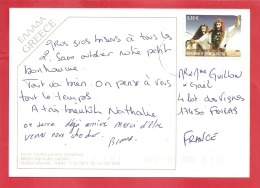 ΕΛΛΑΣ
GREECE
Gros gros bisous à tous les
2. Sans oublier notre petit
bonhomme.
Tout va bien. On pense à vous
tout le temps
A très bientôt Nathalie
on sera déjà arrivé merci d'être
venu nous chercher.
Bisous
Mr et Mme Guillon
Gaël
4 lot des Vignes
17450 FOURAS
FRANCE